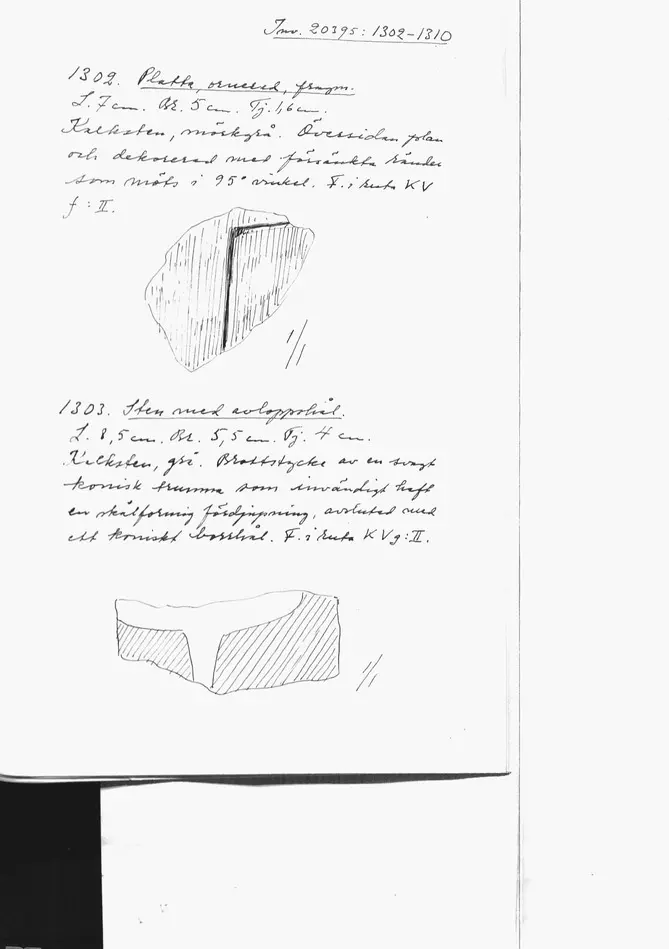 Inv. 20395: 1302-1310
1302. Platta, ornerad, fragm.
L. 7 cm. Br. 5 cm. Tj. 1,6 cm.
Kalksten, mörkgrå. Översidan plan
och dekorerad med försänkta ränder
som möts i 95° vinkel. F. i ruta KV
f: II.
1/1
1303. Sten med avloppshål.
L. 8,5 cm. Br. 5,5 cm. Tj. 4 cm.
Kalksten, grå. Brottstycke av en svagt
konisk trumma som invändigt haft
en skålformig fördjupning, avslutad med
ett koniskt borrhål. F. i ruta KVg: II.
1/1